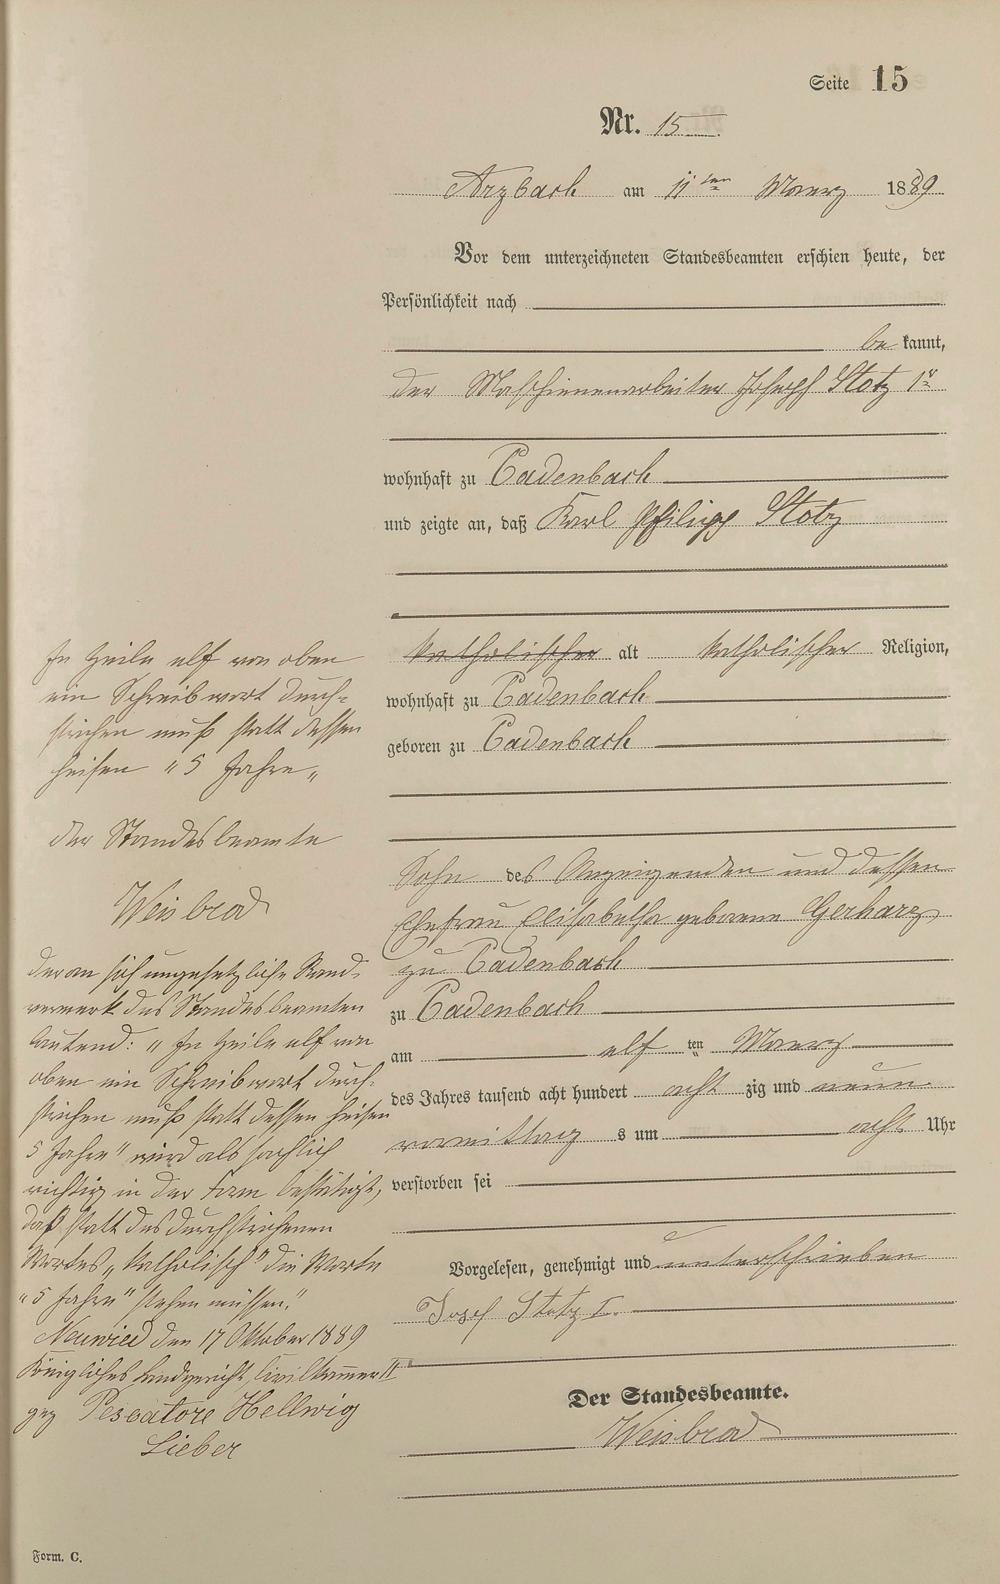 Seite 15
Nr. 15
Arzbach am 11ten Maerz 1889
Vor dem unterzeichneten Standesbeamten erschien heute, der
Persönlichkeit nach
be kannt,
der Maschienenarbeiter Joseph Stotz 1r
wohnhaft zu Cadenbach
und zeigte an, daß Karl Philipp Stotz
katholischer alt katholischer Religion,
wohnhaft zu Cadenbach
geboren zu Cadenbach
Sohn des Anzeigenden und dessen
Ehefrau Elisabetha geborene Gerharz
zu Cadenbach
zu Cadenbach
am elf ten Maerz
des Jahres tausend acht hundert acht zig und neun
vormittag s um acht Uhr
verstorben sei
Vorgelesen, genehmigt und unterschrieben
Josef Stotz I.
Der Standesbeamte.
Weisbrod
In Zeile elf von oben
ein Schreibwort durch-
strichen muß statt dessen
heisen "5 Jahre"
der Standesbeamte
Weisbrod
der an sich ungesetzliche Rand-
vermerk des Standesbeamten
lautend: "In Zeile elf von
oben ein Schreibwort durch-
strichen muß statt dessen heisen
5 Jahre" wird als sachlich
richtig in der Form bestätigt,
daß statt des durchstrichenen
Wortes "katholisch" die Worte
"5 Jahre" stehen müssen.
Neuwied den 17 Oktober 1889
Königliches Landgericht, Civilkammer II
gez Pescatore Hellwig
Lieber
Form. C.